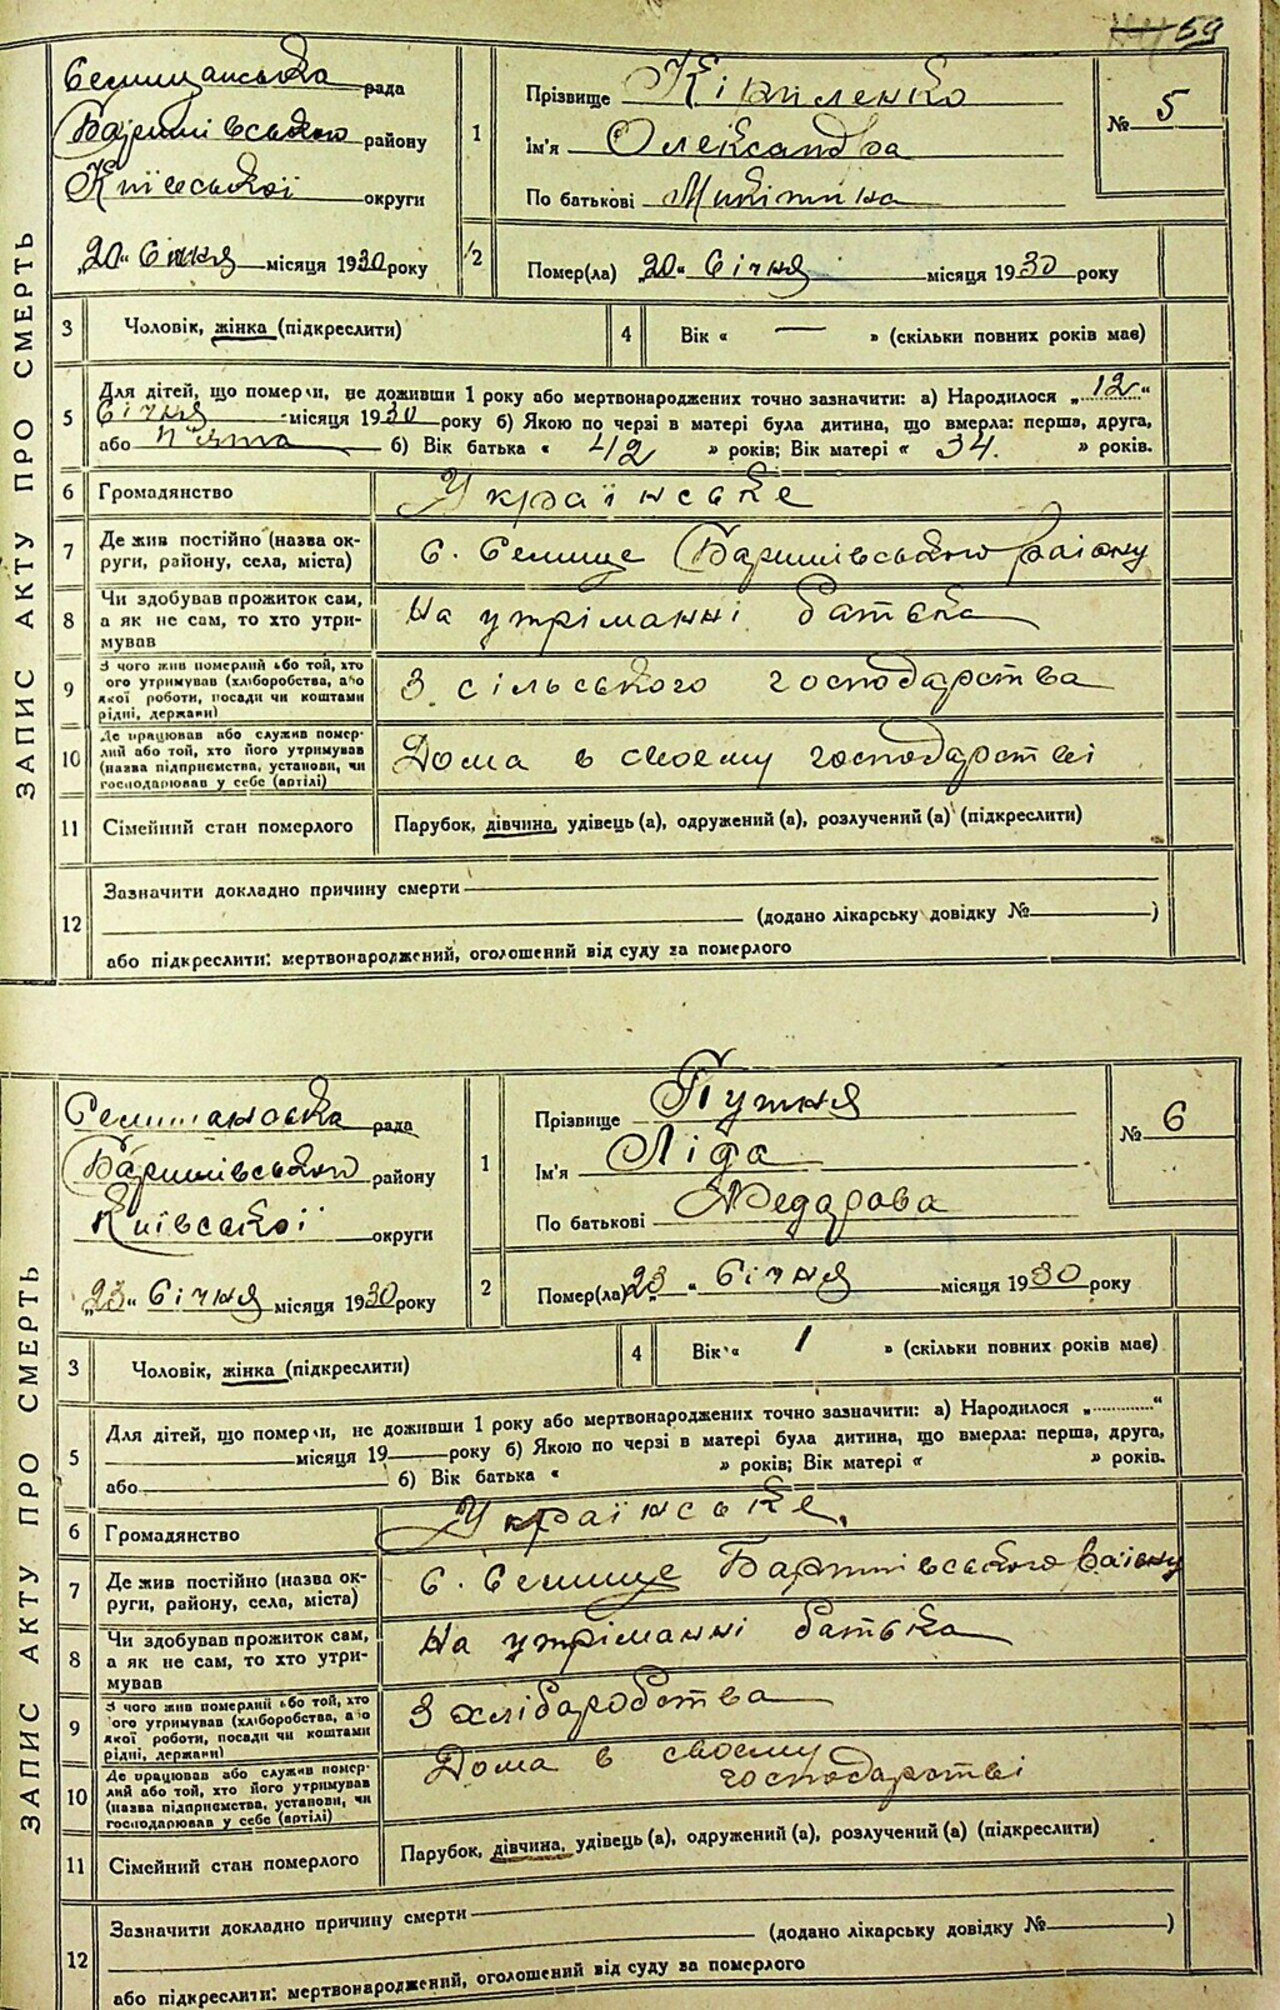 59
ЗАПИС АКТУ ПРО СМЕРТЬ
Селищанська рада
Баришівського району
Київської округи
„20“ Січня місяця 1930 року
1
Прізвище Кириленко
Ім'я Олександра
По батькові Микітівна
№ 5
2
Помер(ла) „20“ Січня місяця 1930 року
3 Чоловік, жінка (підкреслити)
4 Вік « — » (скільки повних років має)
5 Для дітей, що померли, не доживши 1 року або мертвонароджених точно зазначити: а) Народилося „12“
Січня місяця 1930 року б) Якою по черзі в матері була дитина, що вмерла: перша, друга,
або п'ята б) Вік батька « 42 » років; Вік матері « 34. » років.
6 Громадянство Українське
7 Де жив постійно (назва ок-
руги, району, села, міста) С. Селище Баришівського району
8 Чи здобував прожиток сам,
а як не сам, то хто утри-
мував На утріманні батька
9 З чого жив померлий або той, хто
ого утримував (хліборобства, або
якої роботи, посади чи коштами
рідні, держави) З сільського господарства
10 Де працював або служив помер-
лий або той, хто його утримував
(назва підприємства, установи, чи
господарював у себе (артілі) Дома в своєму господарстві
11 Сімейний стан померлого Парубок, дівчина, удівець (а), одружений (а), розлучений (а) (підкреслити)
12 Зазначити докладно причину смерти
(додано лікарську довідку № )
або підкреслити: мертвонароджений, оголошений від суду за померлого
ЗАПИС АКТУ ПРО СМЕРТЬ
Селищанська рада
Баришівського району
Київської округи
„23“ Січня місяця 1930 року
1
Прізвище Пужня
Ім'я Ліда
По батькові Федорова
№ 6
2
Помер(ла) „23“ Січня місяця 1930 року
3 Чоловік, жінка (підкреслити)
4 Вік « 1 » (скільки повних років має)
5 Для дітей, що померли, не доживши 1 року або мертвонароджених точно зазначити: а) Народилося „ “
місяця 19 року б) Якою по черзі в матері була дитина, що вмерла: перша, друга,
або б) Вік батька « » років; Вік матері « » років.
6 Громадянство Українське.
7 Де жив постійно (назва ок-
руги, району, села, міста) С. Селище Баришівського району
8 Чи здобував прожиток сам,
а як не сам, то хто утри-
мував На утріманні батька
9 З чого жив померлий або той, хто
ого утримував (хліборобства, або
якої роботи, посади чи коштами
рідні, держави) З хліборобства
10 Де працював або служив помер-
лий або той, хто його утримував
(назва підприємства, установи, чи
господарював у себе (артілі) Дома в своєму
господарстві
11 Сімейний стан померлого Парубок, дівчина, удівець (а), одружений (а), розлучений (а) (підкреслити)
12 Зазначити докладно причину смерти
(додано лікарську довідку № )
або підкреслити: мертвонароджений, оголошений від суду за померлого